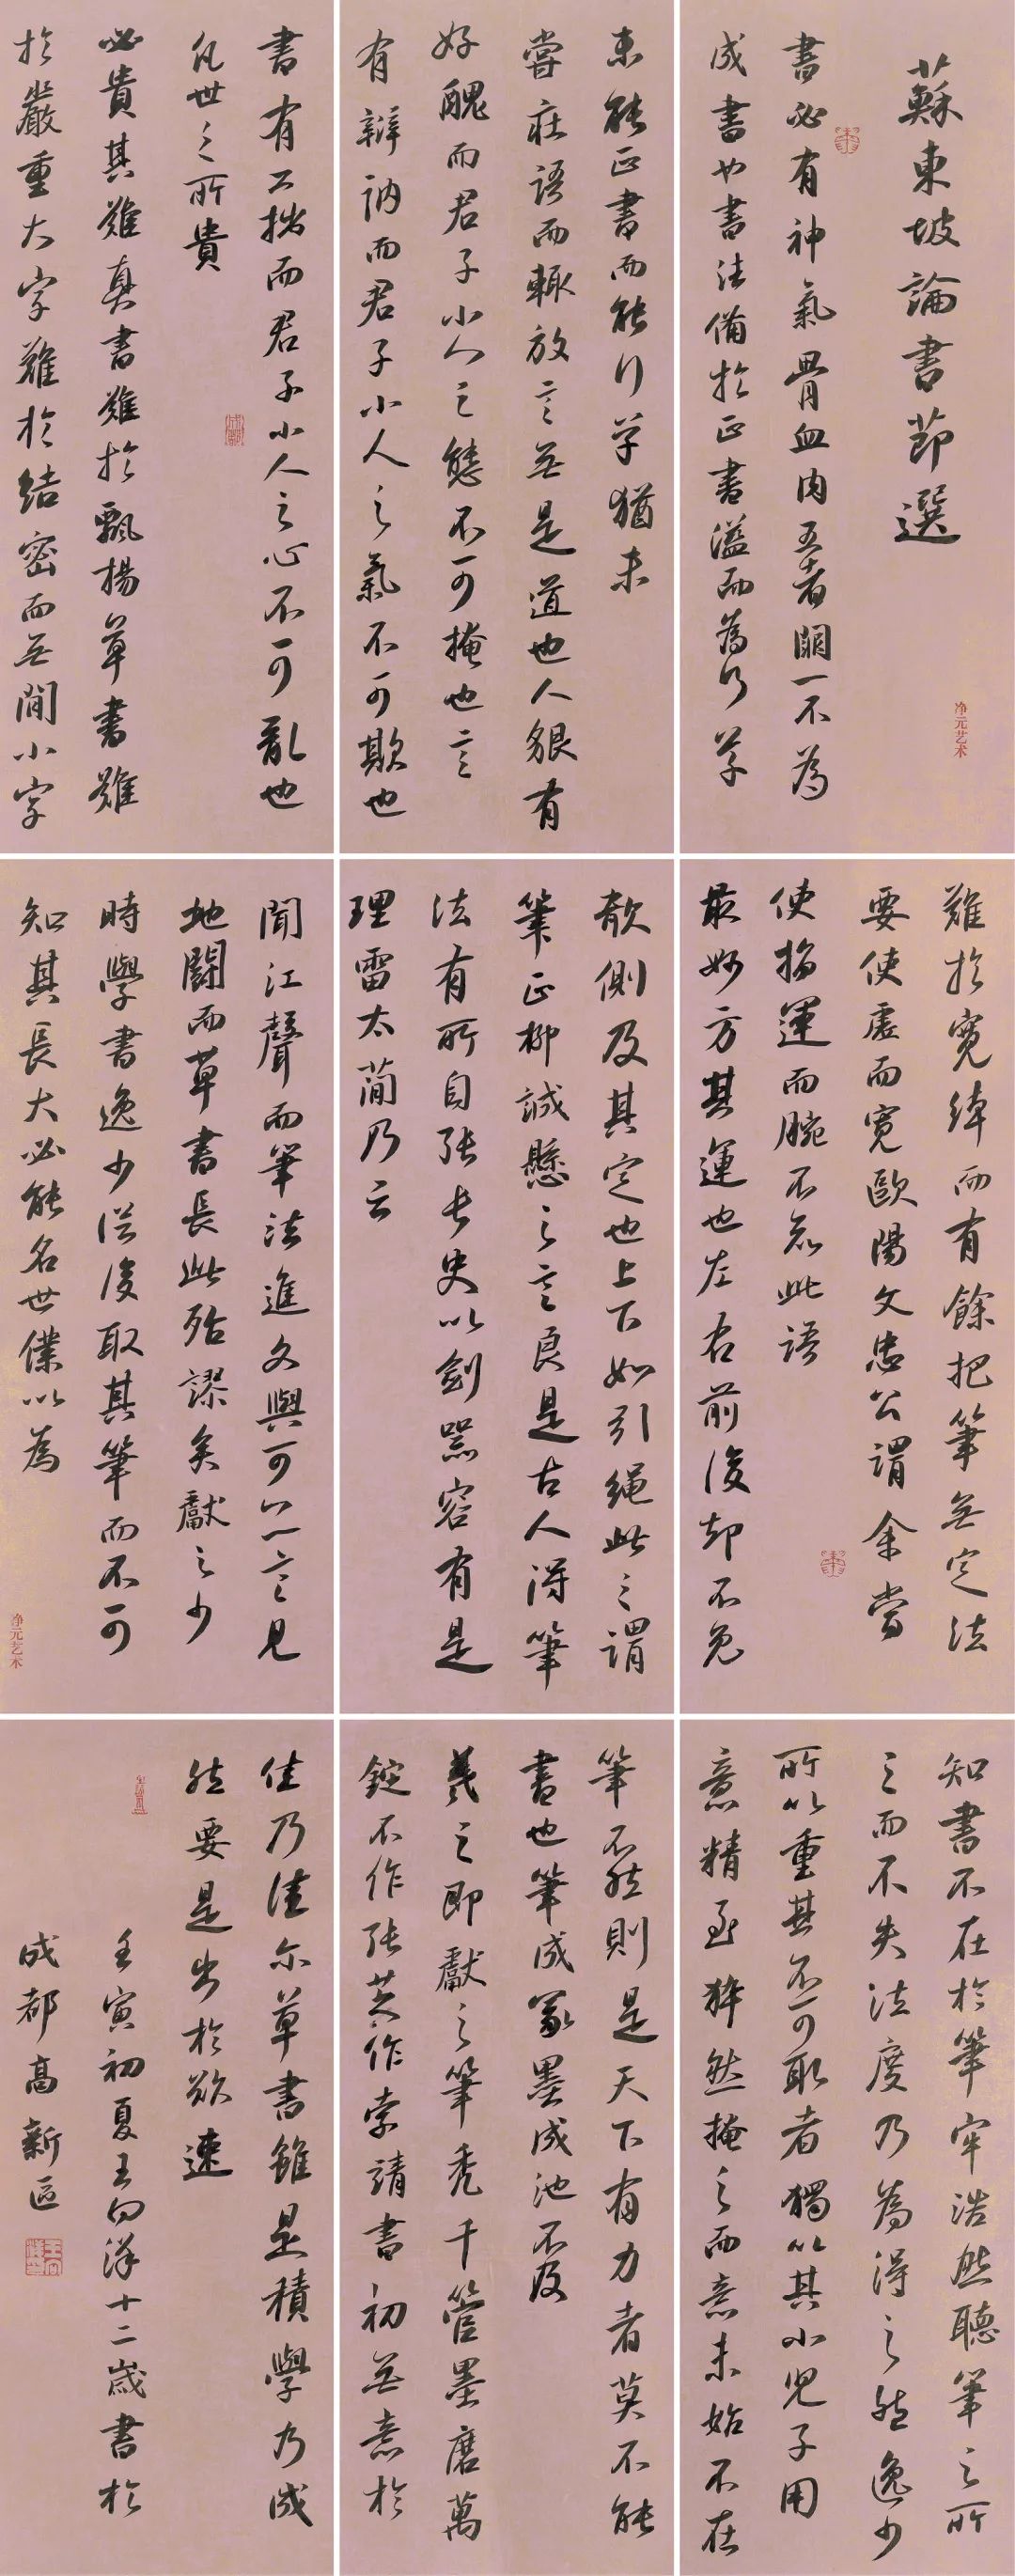 蘇東坡論書節選
書必有神氣骨血肉五者闕一不為
成書也書法備於正書溢而為行草
净元艺术
未能正書而能行草猶未
嘗莊語而輒放言無是道也人貌有
好醜而君子小人之態不可掩也言
有辯訥而君子小人之氣不可欺也
書有工拙而君子小人之心不可亂也
凡世之所貴
必貴其難真書難於飄揚草書難
於嚴重大字難於結密而無間小字
難於寬綽而有餘把筆無定法
要使虛而寬歐陽文忠公謂余當
使指運而腕不知此語
最妙方其運也左右前後却不免
欹側及其定也上下如引繩此之謂
筆正柳誠懸之言良是古人得筆
法有所自張長史以劍器容有是
理雷太簡乃云
聞江聲而筆法進文與可亦言見
地鬭而草書長此殆謬矣獻之少
時學書逸少從後取其筆而不可
知其長大必能名世僕以為
净元艺术
知書不在於筆牢浩然聽筆之所
之而不失法度乃為得之然逸少
所以重其不可取者獨以其小兒子用
意精至猝然掩之而意未始不在
筆不然則是天下有力者莫不能
書也筆成冢墨成池不及
羲之即獻之筆禿千管墨磨萬
錠不作張芝作索靖書初無意於
佳乃佳尔草書雖是積學乃成
然要是出於欲速
壬寅初夏王向洋十二歲書於
成都高新區